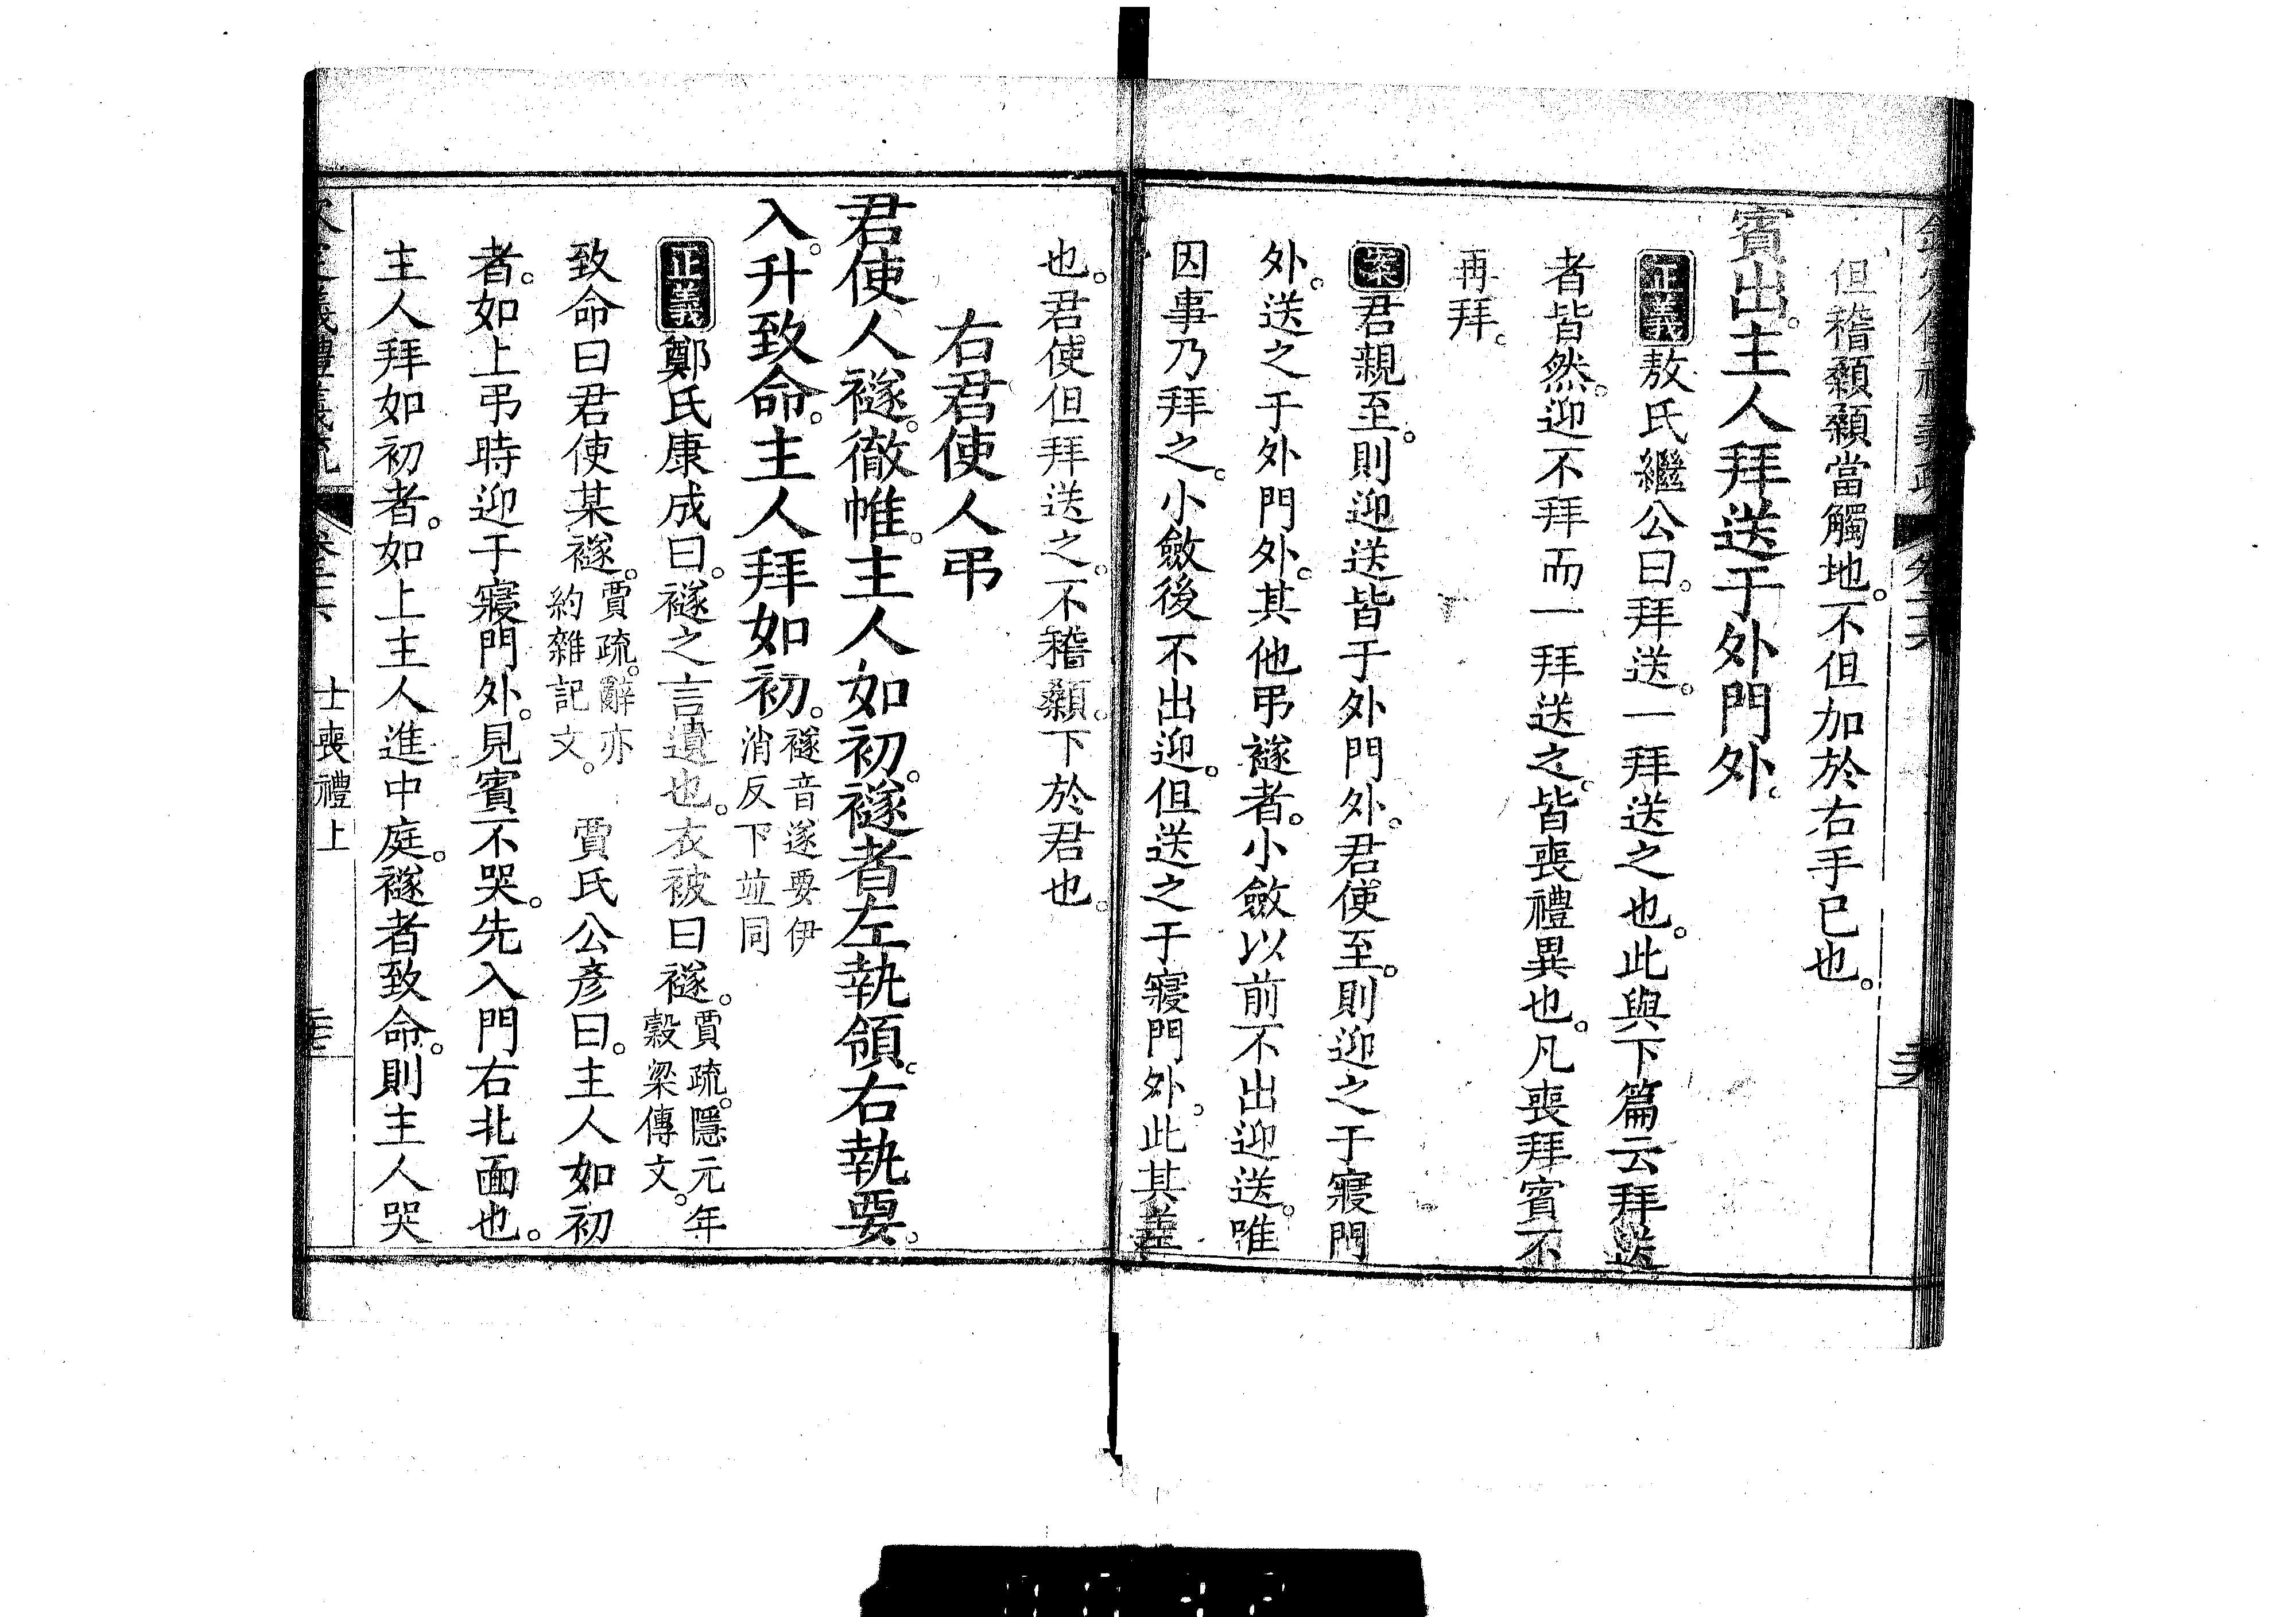 但稽顙顙當觸地。不但加於右手已也。
賓出。主人拜送于外門外。
正義敖氏繼公曰。拜送。一拜送之也。此與下篇云拜送
者皆然。迎不拜而一拜送之。皆喪禮異也。凡喪拜賓不
再拜。
案君親至。則迎送皆于外門外。君使至。則迎之于寢門
外。送之于外門外。其他弔襚者。小斂以前不出迎送。唯
因事乃拜之。小斂後不出迎。但送之于寢門外。此其差
也。君使但拜送之。不稽顙。下於君也。
右君使人弔
君使人襚。徹帷。主人如初。襚者左執領。右執要。
入。升致命。主人拜如初。襚音遂要伊
消反下竝同
正義鄭氏康成曰。襚之言遺也。衣被曰襚。賈疏。隱元年
穀梁傳文。
致命曰君使某襚。賈疏。辭亦
約雜記文。
賈氏公彥曰。主人如初
者。如上弔時迎于寢門外。見賓不哭。先入門右北面也。
主人拜如初者。如上主人進中庭。襚者致命。則主人哭
士喪禮上